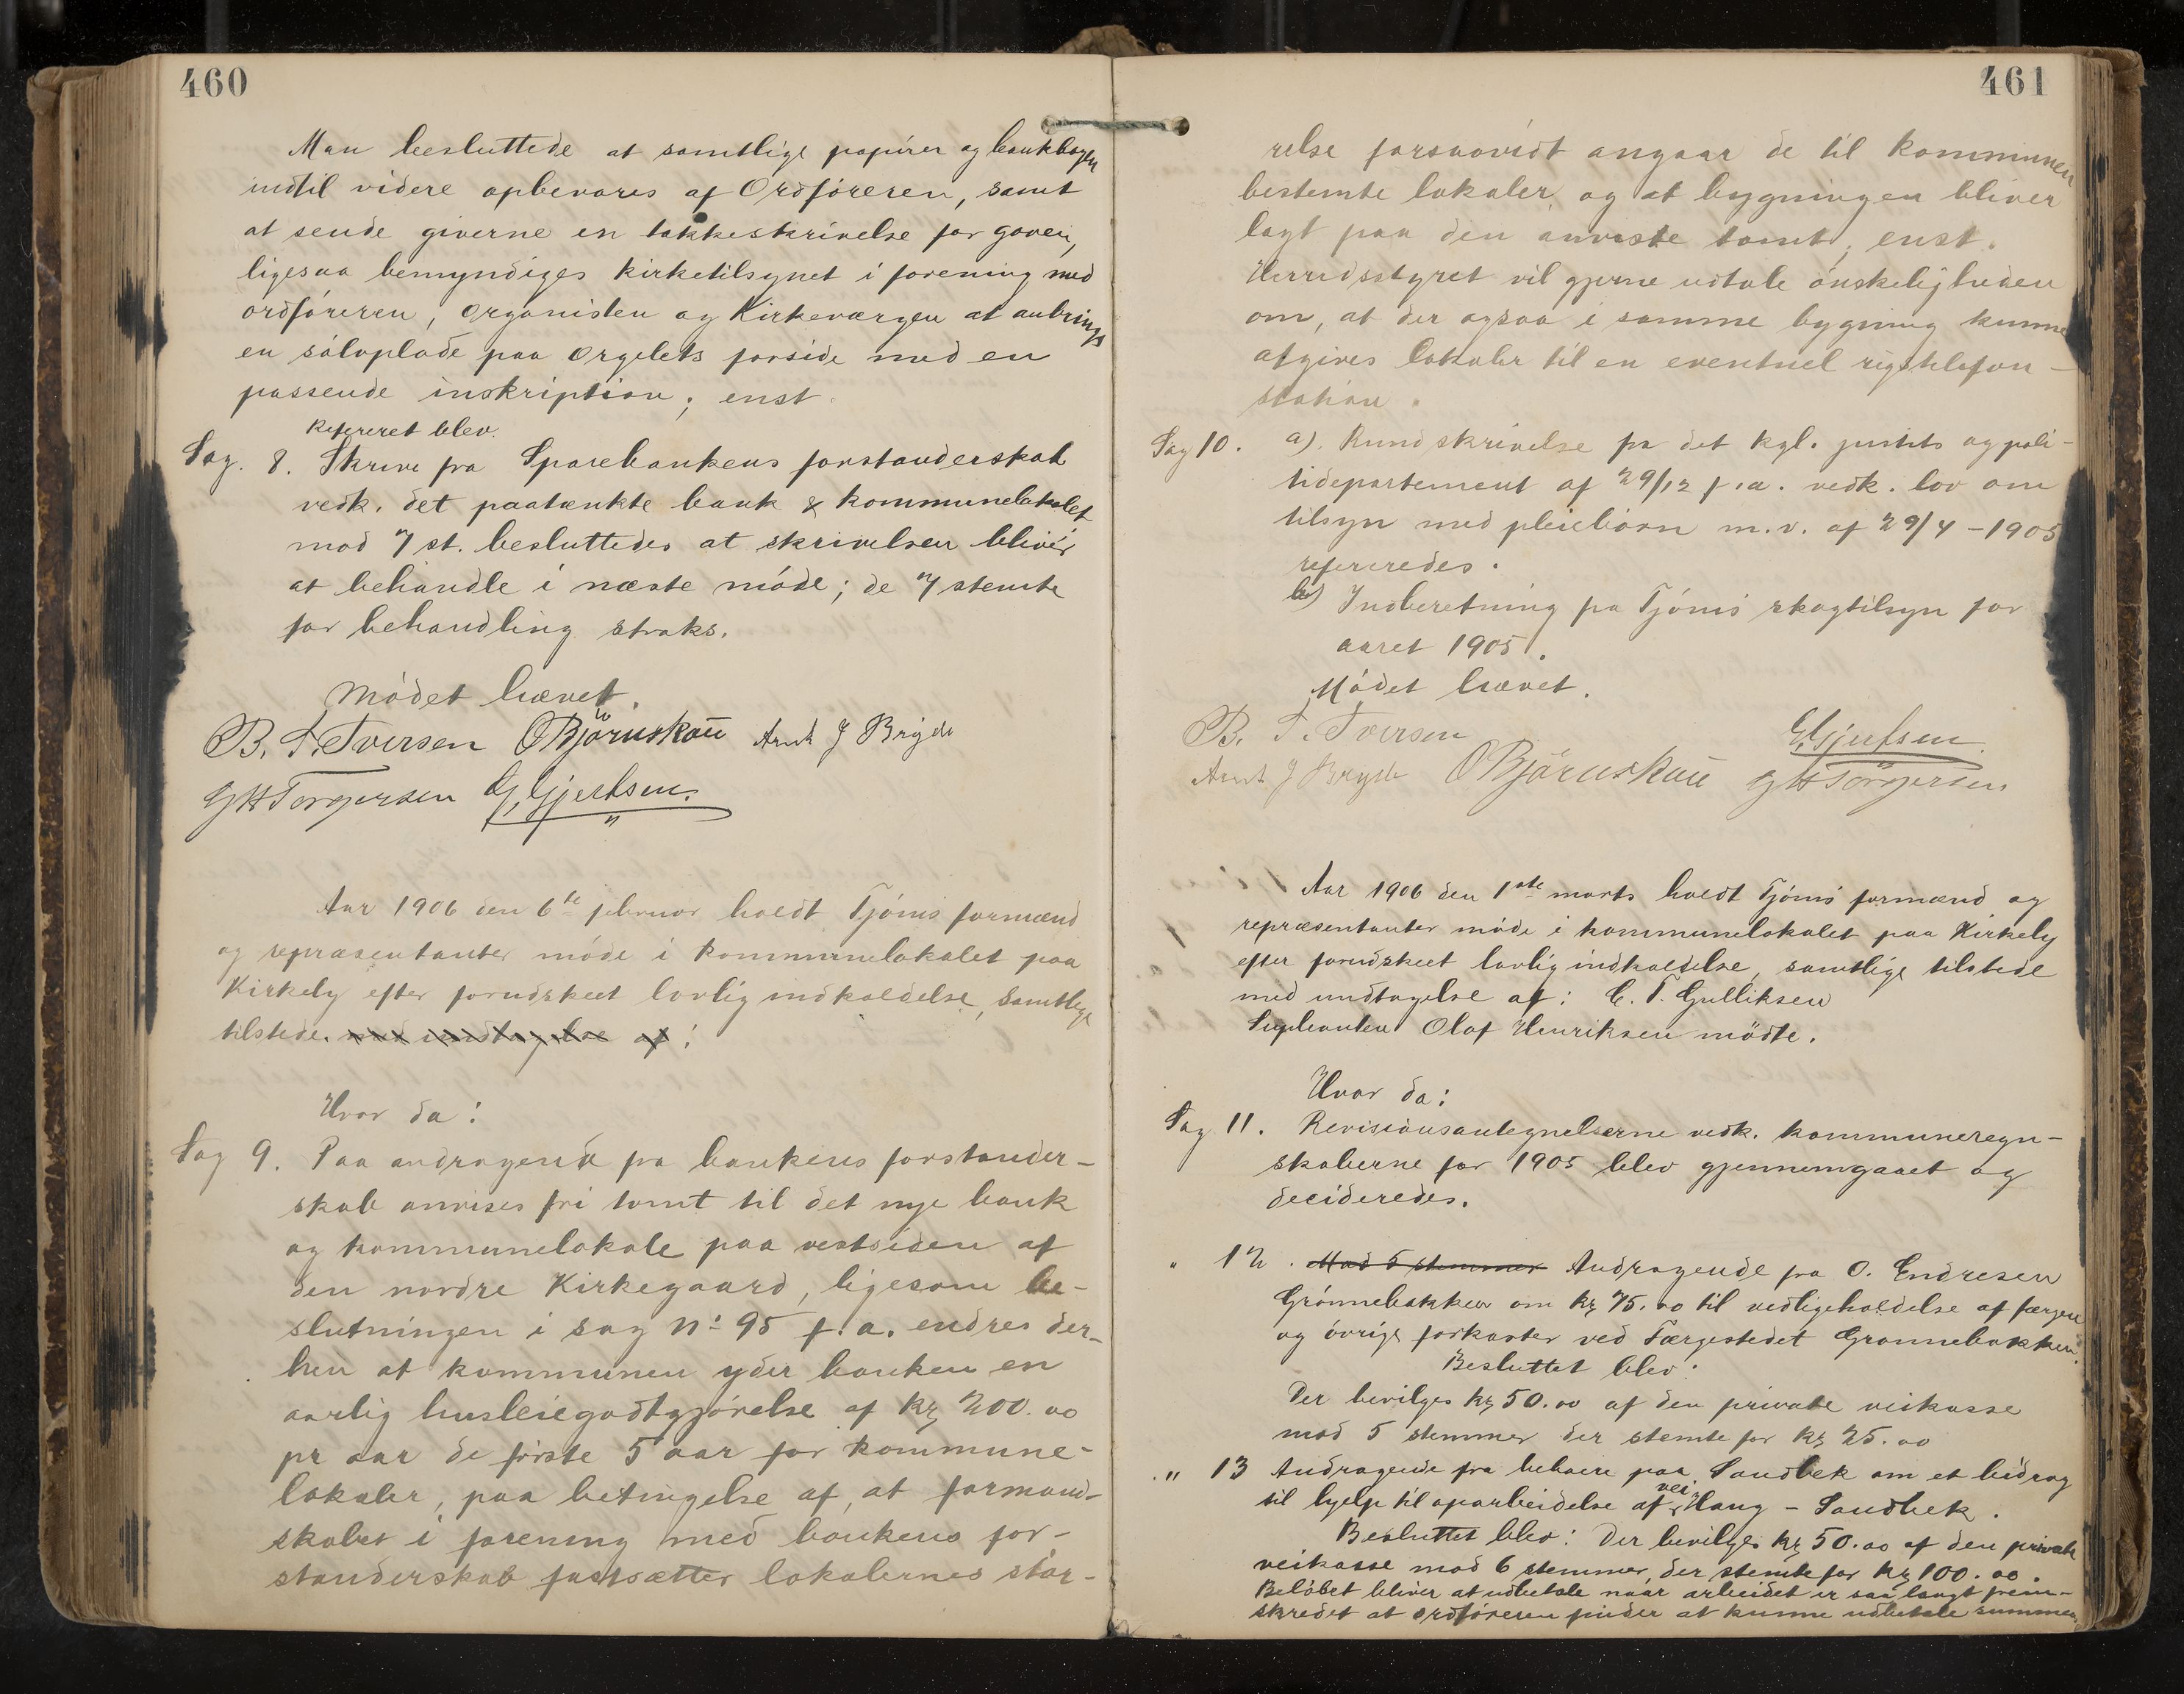 460
Man besluttede at samtlige papirer og bankbogen
indtil videre opbevares af Ordföreren, samt
at sende giverne en takkeskrivelse for gaven,
ligesaa bemyndiges kirketilsynet i forening med
ordföreren, organisten og Kirkeværgen at anbringe
en sölvplade paa orgelets forside med en
passende inskription; enst.
Refereret blev.
Sag. 8. Skrive fra Sparebankens forstanderskab
vedk. det paatænkte bank & kommunelokalet
mod 7 st. besluttedes at skrivelsen bliver
at behandle i næste möde; de 7 stemte
for behandling straks.
Mödet hævet.
B. T. Iversen OBjörnskau Arnt J Bryde
GHTorgersen G. Gjertsen.
Aar 1906 den 6te februar holdt Tjömö formænd
og repræsentanter möde i kommunelokalet paa
Kirkely efter forudskeet lovlig indkaldelse, samtlige
tilstede. med undtagelse af:
Hvor da:
Sag 9. Paa andragende fra bankens forstander-
skab anvises fri tomt til det nye bank
og kommunelokale paa vestsiden af
den nordre Kirkegaard, ligesom be-
slutningen i sag No 95 f.a. endres der-
hen at kommunen yder banken en
aarlig husleiegodtgjörelse af kr 200.00
pr aar de förste 5 aar for kommune-
lokaler, paa betingelse af, at formand-
skabet i forening med bankens for-
standerskab fastsætter lokalernes stör-
461
relse forsaavidt angaar de til kommunen
bestemte lokaler, og at bygningen bliver
lagt paa den anviste tomt; enst.
Herredsstyret vil gjerne udtale önskeligheden
om, at der ogsaa i samme bygning kunne
afgives lokaler til en eventuel rigstelefon-
station.
Sag 10. a). Rundskrivelse fra det kgl. justits og poli-
tidepartement af 29/12 f.a. vedk. lov om
tilsyn med pleiebörn m.v. af 29/4-1905
refereredes.
b) Indberetning fra Tjömö skogtilsyn for
aaret 1905.
Mödet hævet.
B. T. Iversen G. Gjertsen
Arnt J Bryde OBjörnskau GHTorgersen
Aar 1906 den 1ste marts holdt Tjömö formænd og
repræsentanter möde i kommunelokalet paa Kirkely
efter forudskeet lovlig indkaldelse, samtlige tilstede
med undtagelse af: C. T. Gulliksen
Suplianten Olaf Henriksen mödte.
Hvor da:
Sag 11. Revisionsantegnelserne vedk. kommuneregn-
skaberne for 1905 blev gjennemgaaet og
decideredes.
" 12. Mod 5 stemmer Andragende fra O. Endresen
Grönnebakken om kr 75.00 til vedligeholdelse af færgen
og övrige forkaster ved Færgestedet Grønnebakken.
Besluttet blev:
Der bevilges kr 50.00 af den private veikasse
mod 5 stemmer der stemte for kr 25.00
" 13 Andragende fra beboere paa Sandbek om et bidrag
til hjelp til oparbeidelse af vei Haug - Sandbek.
Besluttet blev: Der bevilges kr 50.00 af den private
veikasse mod 6 stemmer, der stemte for kr 100.00.
Belöbet bliver at udbetale naar arbeidet er saa langt frem-
skredet at ordföreren finder at kunne udbetale summen.